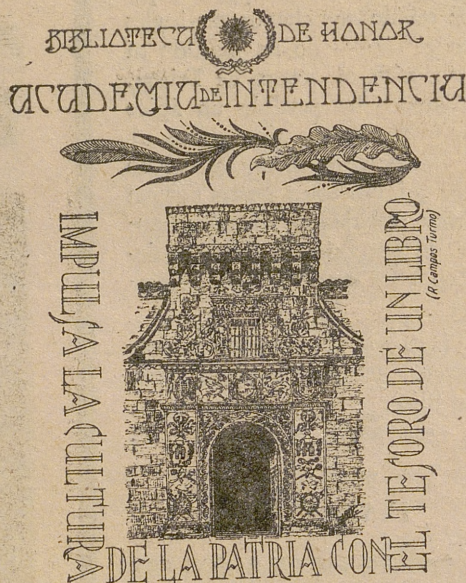 BIBLIOTECA DE HONOR
ACADEMIA DE INTENDENCIA
IMPULSA LA CULTURA
DE LA PATRIA CON
EL TESORO DE UN LIBRO
(R Campos Turmo)